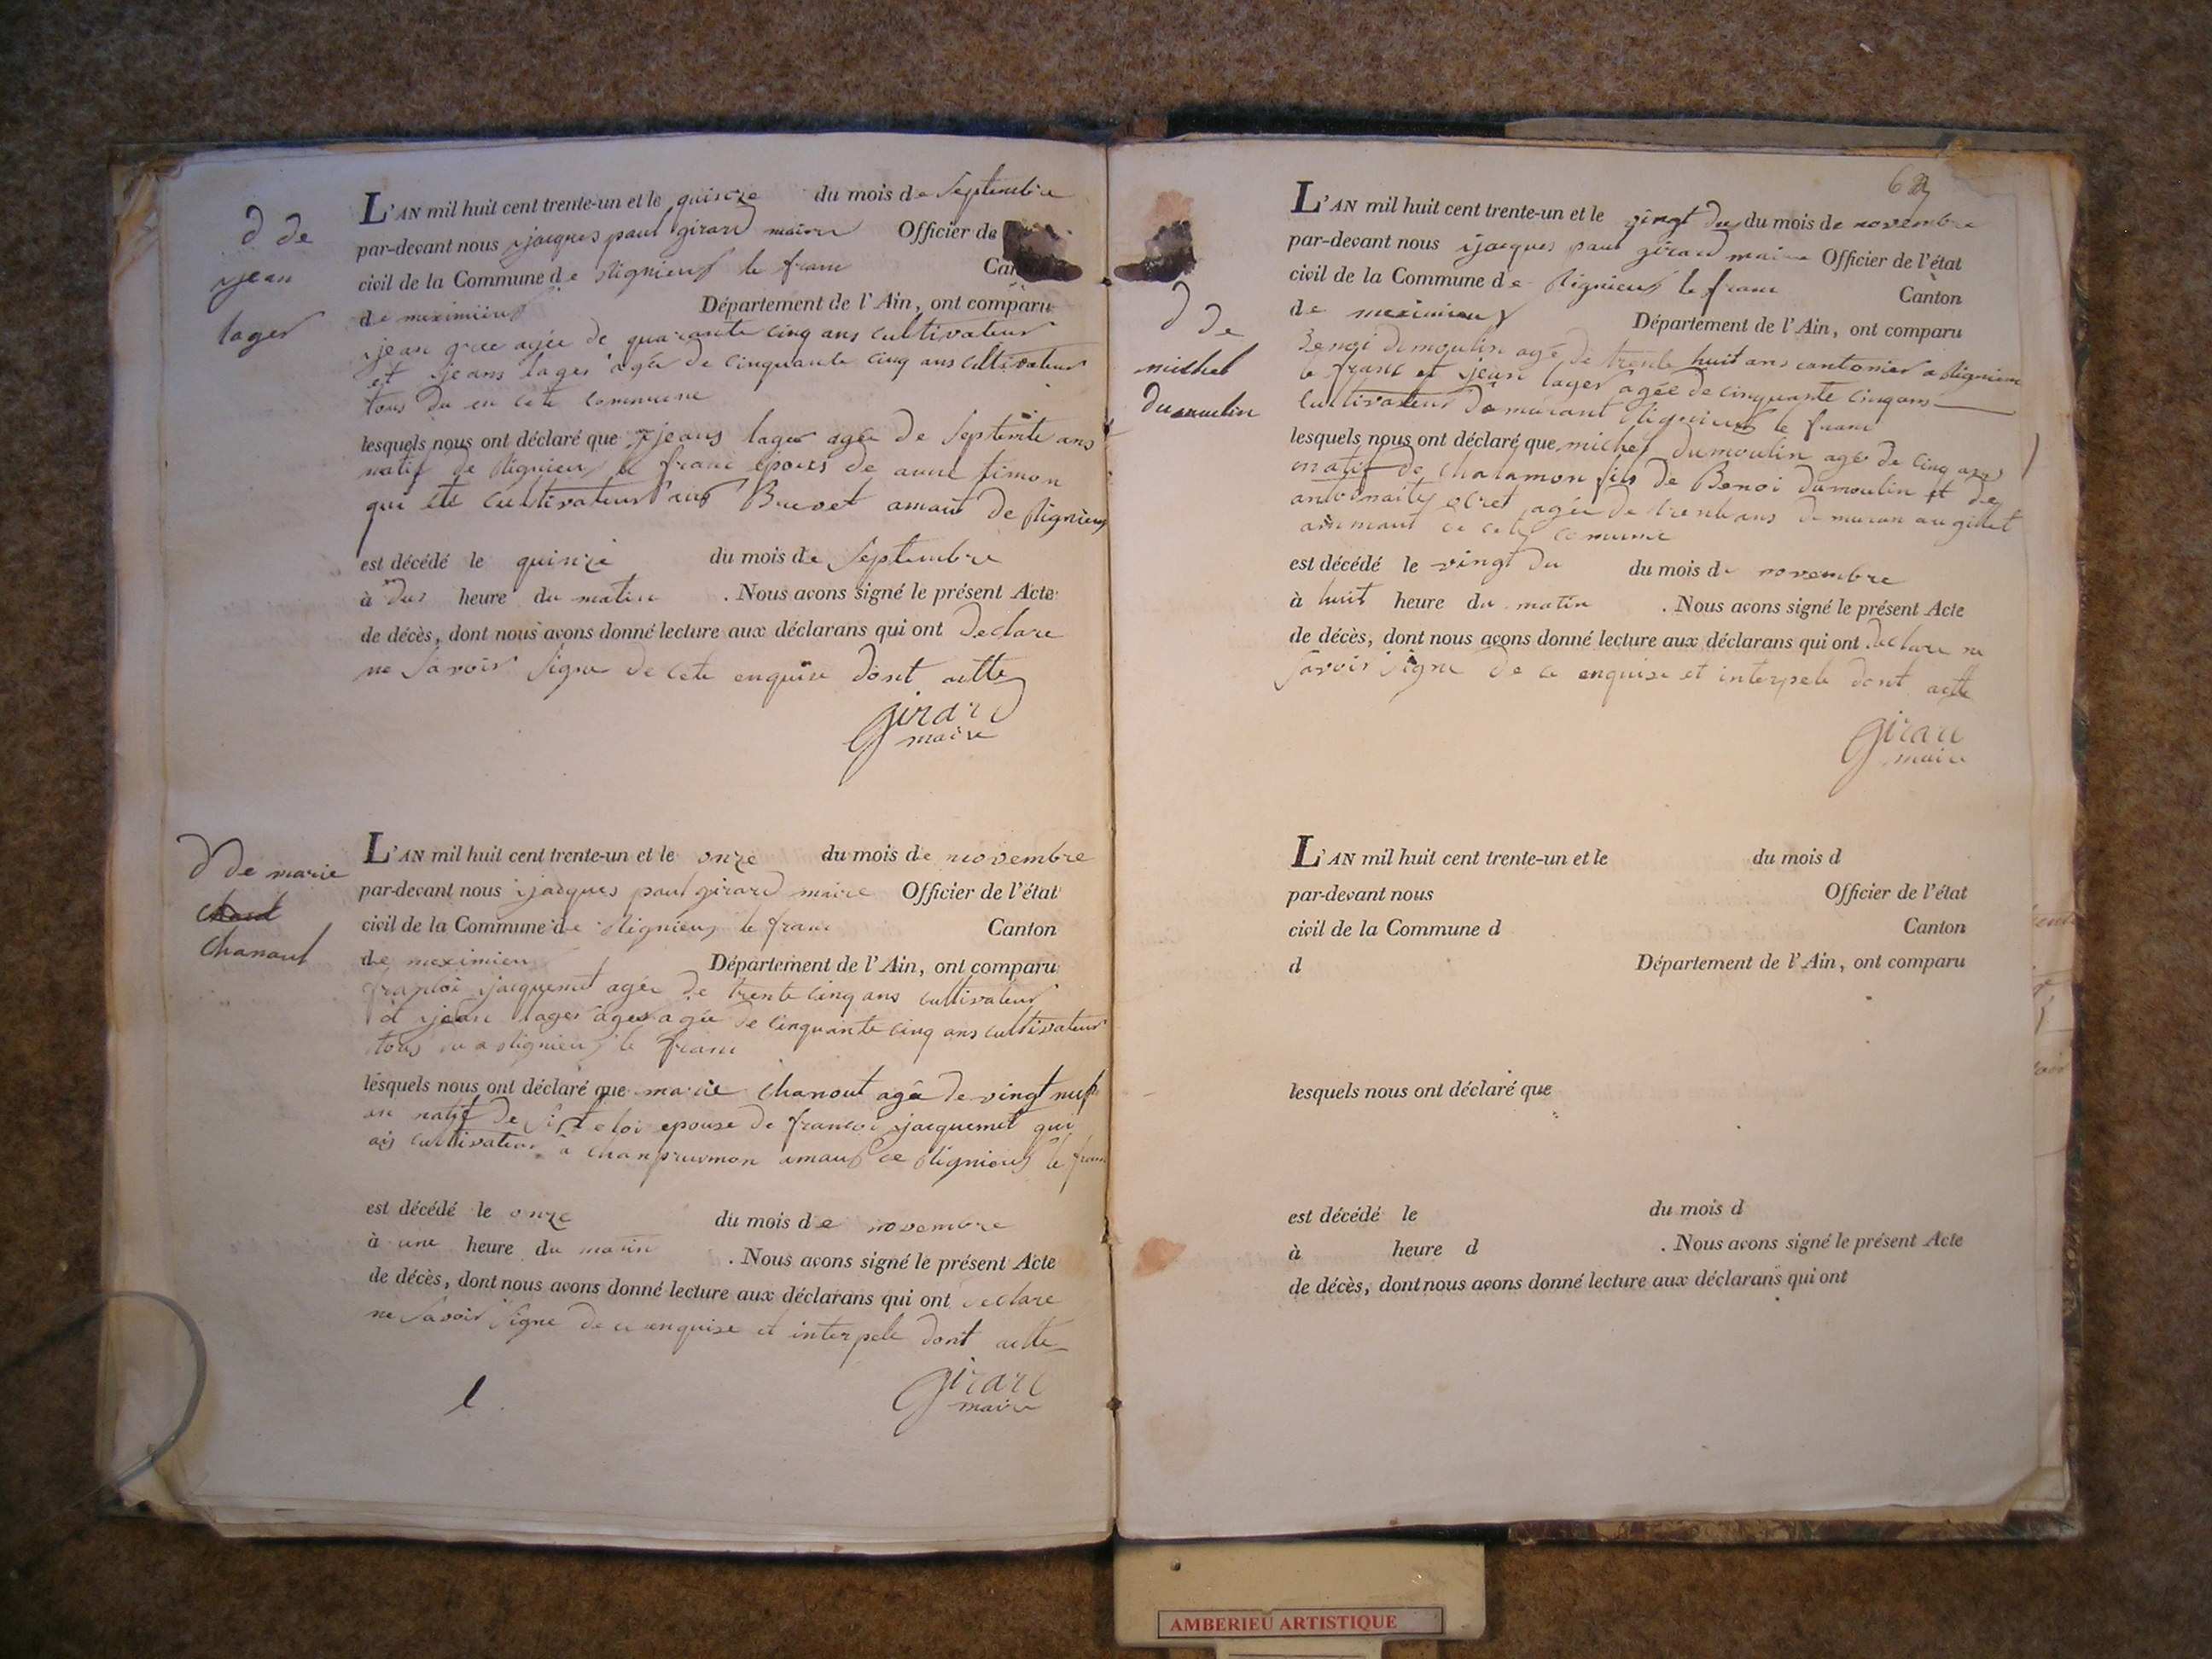 d de
jean
lager
L'AN mil huit cent trente-un et le quinze du mois de septembre
par-devant nous jacques paul girard maire Officier de
civil de la Commune de rignieux le franc Can
de meximieux Département de l'Ain, ont comparu
jean agée de quarante cinq ans cultivateur
et jeans lager agée de cinquante cinq ans cultivateur
tous du en cete commune
lesquels nous ont déclaré que jeans lager agée de septente ans
natif de rignieux le franc epoux de anne simon
qui été cultivateur aux Brevet amau de rignieux
est décédé le quinze du mois de septembre
à dus heure du matin . Nous avons signé le présent Acte
de décès, dont nous avons donné lecture aux déclarans qui ont declare
ne savoir signe de cete enquise dont actte
girard
maire
d de marie
chanout
L'AN mil huit cent trente-un et le onze du mois de novembre
par-devant nous jacques paul girard maire Officier de l'état
civil de la Commune de rignieux le franc Canton
de meximieu Département de l'Ain, ont comparu
francoi jacquemet agée de trente cinq ans cultivateur
et jean lager agée de cinquante cinq ans cultivateur
tous a rignieux le franc
lesquels nous ont déclaré que marie chanout agé de vingt neuf
an natif de st eloi epouse de francoi jacquemet qui
cultivateur à amau de rignieux le franc
est décédé le onze du mois de novembre
à une heure du matin . Nous avons signé le présent Acte
de décès, dont nous avons donné lecture aux déclarans qui ont declare
ne savoir signe de ce enquise et interpele dont actte
girard
maire
d de
michel
dumoulin
L'AN mil huit cent trente-un et le vingt du du mois de novembre
par-devant nous jacques paul girard maire Officier de l'état
civil de la Commune de rignieux le franc Canton
de meximieux Département de l'Ain, ont comparu
Benoi dumoulin agé de trente huit ans cantonier a rignieux
le franc et jean lager agée de cinquante cinq ans
cultivateur demurant rignieux le franc
lesquels nous ont déclaré que michel dumoulin agé de cinq ans
natif de chalamon fils de Benoi dumoulin et de
agée de trente ans demuran au gillet
de cete comune
est décédé le vingt du du mois de novembre
à huit heure du matin . Nous avons signé le présent Acte
de décès, dont nous avons donné lecture aux déclarans qui ont declare ne
savoir signe de ce enquise et interpele dont actte
girard
maire
L'AN mil huit cent trente-un et le du mois d
par-devant nous Officier de l'état
civil de la Commune d Canton
d Département de l'Ain, ont comparu
lesquels nous ont déclaré que
est décédé le du mois d
à heure d . Nous avons signé le présent Acte
de décès, dont nous avons donné lecture aux déclarans qui ont
AMBERIEU ARTISTIQUE